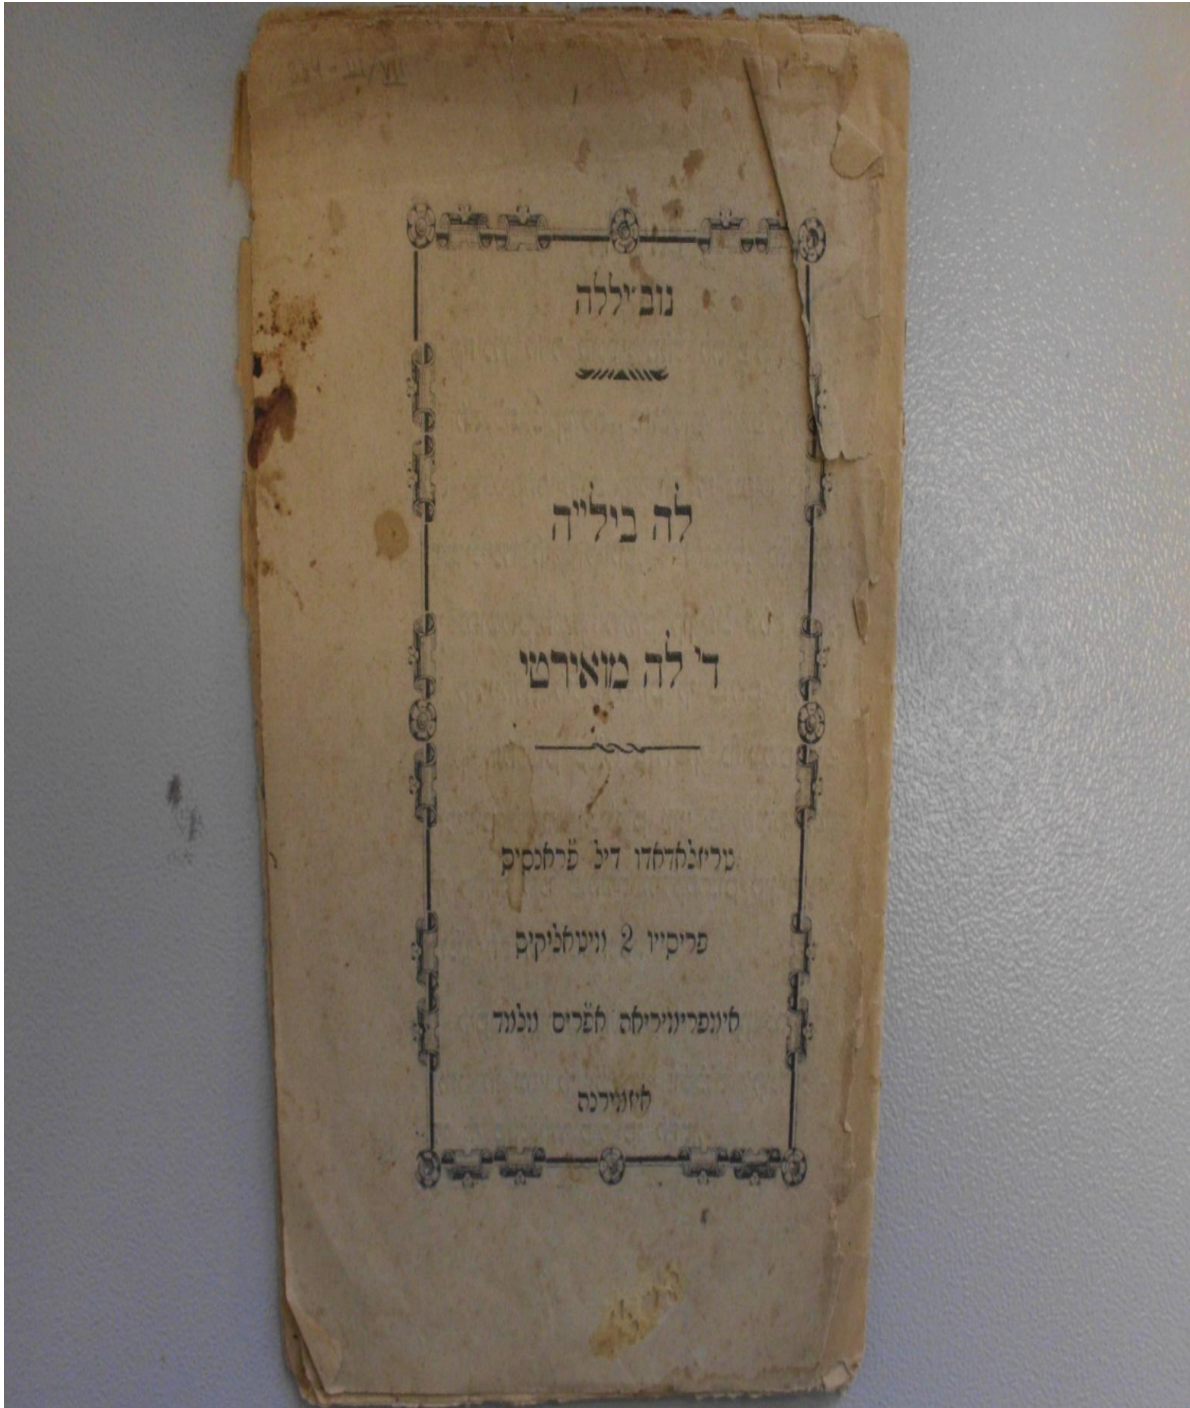 נוב׳יללה
לה בילייה
די לה מואירטי
טריזלאדאדו דיל פ׳ראנסיס
פריסייו 2 מיטאליקיס
אימפרימיריאה אפ׳רים מלמד
איזמירנה